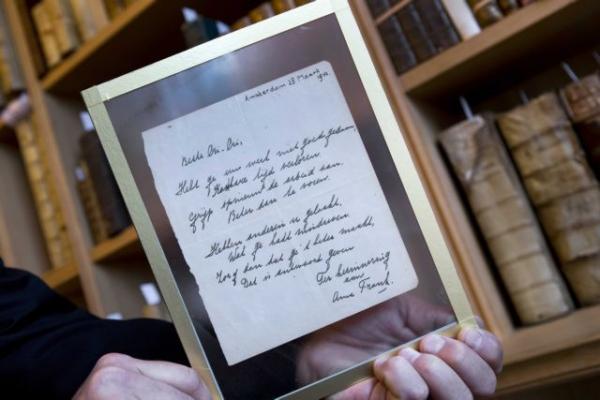 Amsterdam 28 Maart
1942
Beste Cri-Cri,
Hebt ge uw werk niet goed gedaan,
kostbare tijd verloren
Grijp opnieuw de arbeid aan.
Beter dan te voren.
Hebben anderen u gelaakt,
Wat ge hadt misdreven
Zorg dan dat ge 't beter maakt,
Dat is antwoord geven
Ter herinnering
aan
Anne Frank.